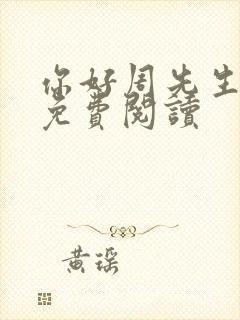 你好周先生
免費閱讀
黃琛